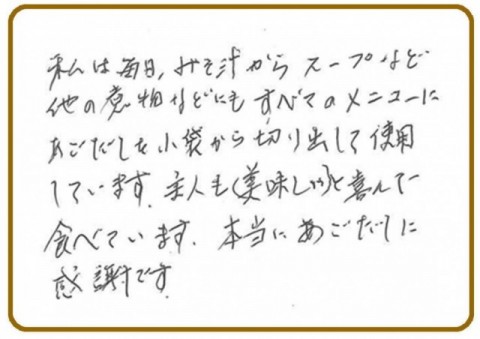 私は毎日、みそ汁からスープなど
他の煮物などにもすべてのメニューに
あごだしを小袋から切り出して使用
しています。主人も(美味しい)と喜んで
食べています。本当にあごだしに
感謝です。